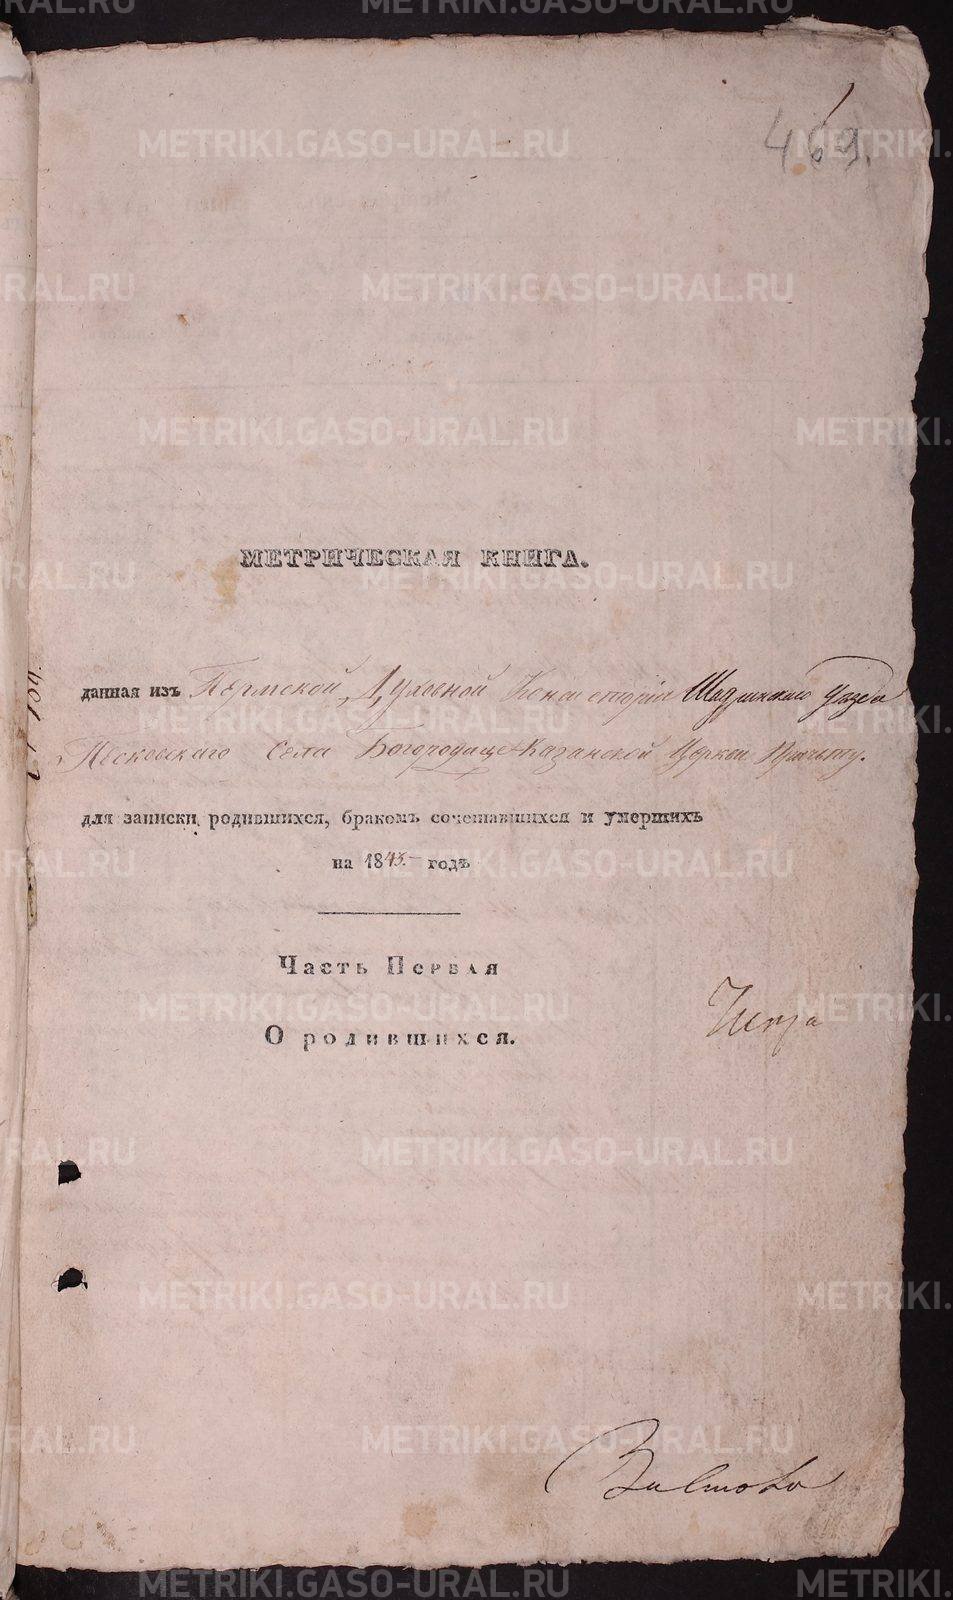 469.
МЕТРИЧЕСКАЯ КНИГА.
данная изъ Пермской Духовной Консисторіи Шадринскаго уѣзда
Песковскаго Села Богородице-Казанской Церкви Причту.
для записки родившихся, бракомъ сочетавшихся и умершихъ
на 1845 годъ
Часть Первая
О родившихся.
METRIKI.GASO-URAL.RU